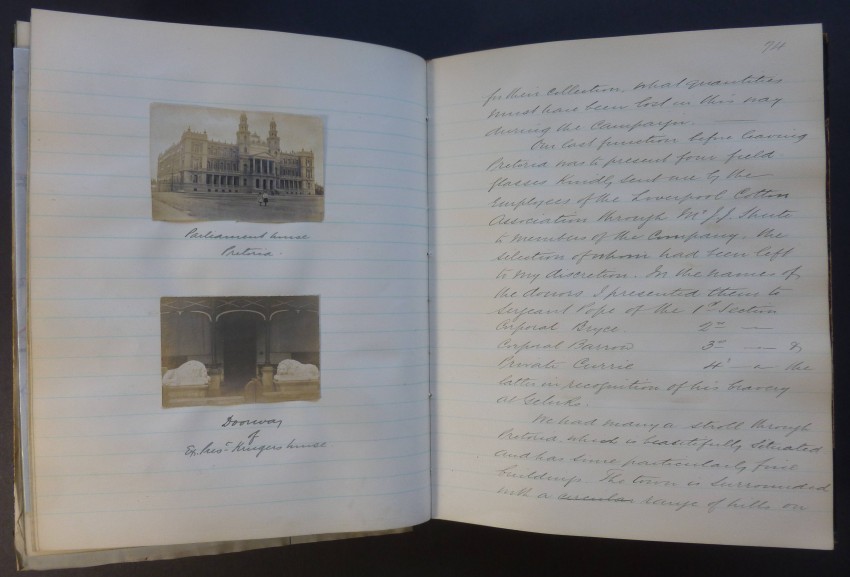 Parliament house
Pretoria.
Doorway
of
Ex. Prest Krugers house
74
for their collection, what quantities
must have been lost in this way
during the Campaign.
Our last function before leaving
Pretoria was to present four field
glasses kindly sent me by the
Employees of the Liverpool Cotton
Association through Mr J. J. Shute
to members of the Company, the
selection of whom had been left
to my discretion. In the names of
the donors I presented them to
Sergeant Pope of the 1st Section
Corporal Bryce 2nd —
Corporal Barrow 3rd — &
Private Currie 4th — the
latter in recognition of his bravery
at Geluks.
We had many a stroll through
Pretoria which is beautifully situated
and has some particularly fine
buildings. The town is surrounded
with a circular range of hills, on